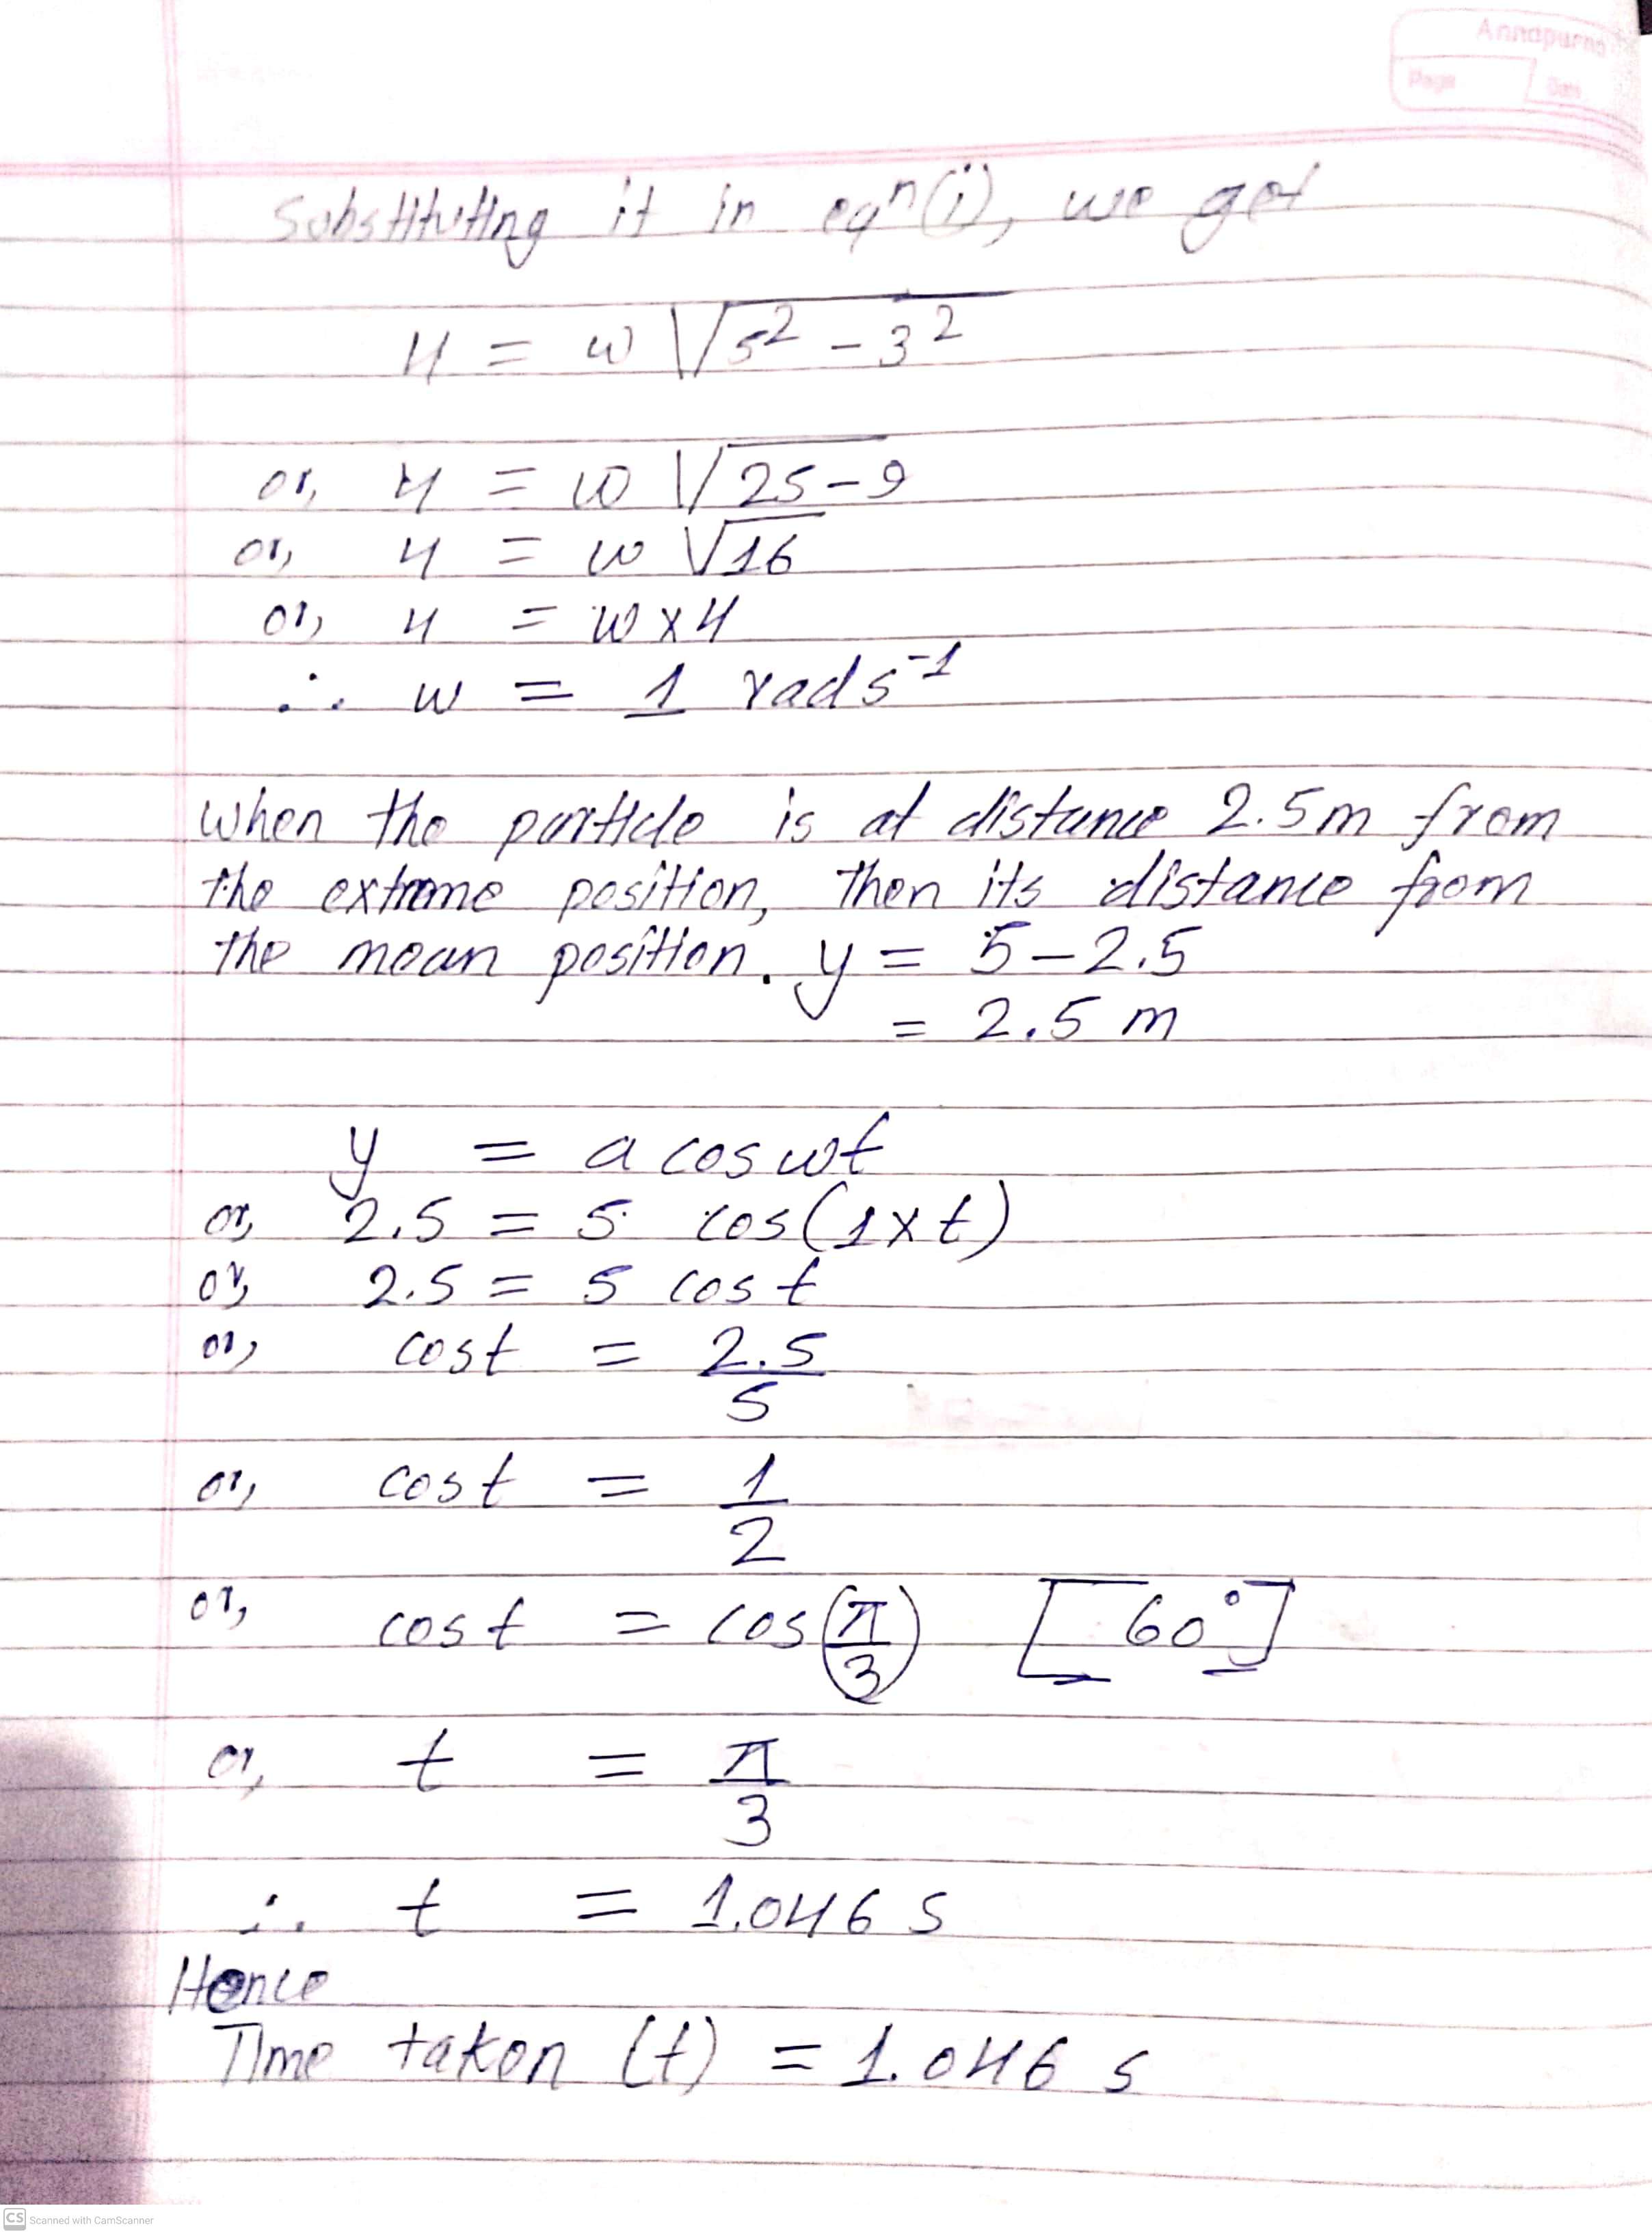 Annapurna
Page
Date
Substituting it in eqⁿ(i), we get
4 = w √5² - 3²
or, 4 = w √25-9
or, 4 = w √16
or, 4 = w x 4
∴ w = 1 rads⁻¹
when the particle is at distance 2.5m from
the extreme position, then its distance from
the mean position. y = 5-2.5
= 2.5 m
y = a cos wt
or, 2.5 = 5 cos(1xt)
or, 2.5 = 5 cos t
or, cos t = 2.5/5
or, cos t = 1/2
or, cos t = cos(π/3) [60°]
or, t = π/3
∴ t = 1.046 s
Hence
Time taken (t) = 1.046 s
CS Scanned with CamScanner